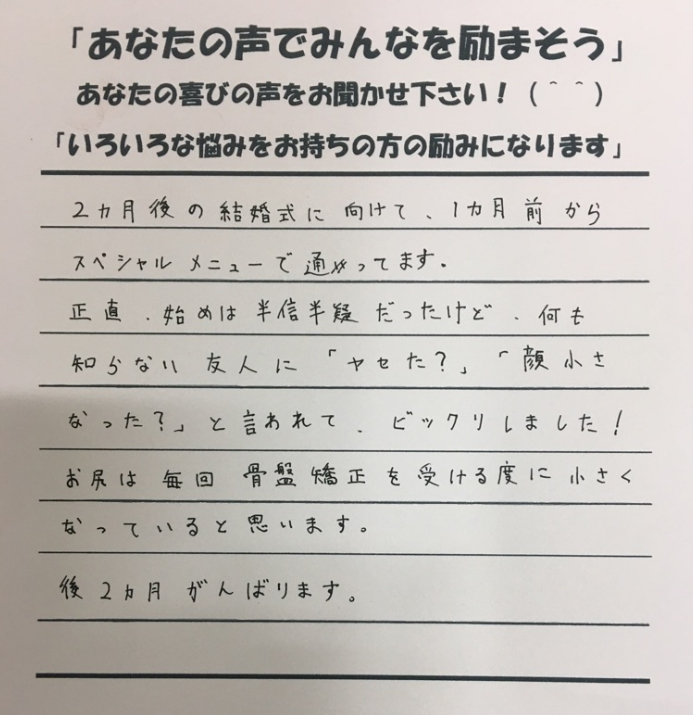 「あなたの声でみんなを励まそう」
あなたの喜びの声をお聞かせ下さい！（＾＾）
「いろいろな悩みをお持ちの方の励みになります」
2カ月後の結婚式に向けて、1カ月前から
スペシャルメニューで通ってます。
正直、始めは半信半疑だったけど、何も
知らない友人に「ヤセた？」「顔小さ
なった？」と言われて、ビックリしました！
お尻は毎回骨盤矯正を受ける度に小さく
なっていると思います。
後2カ月がんばります。